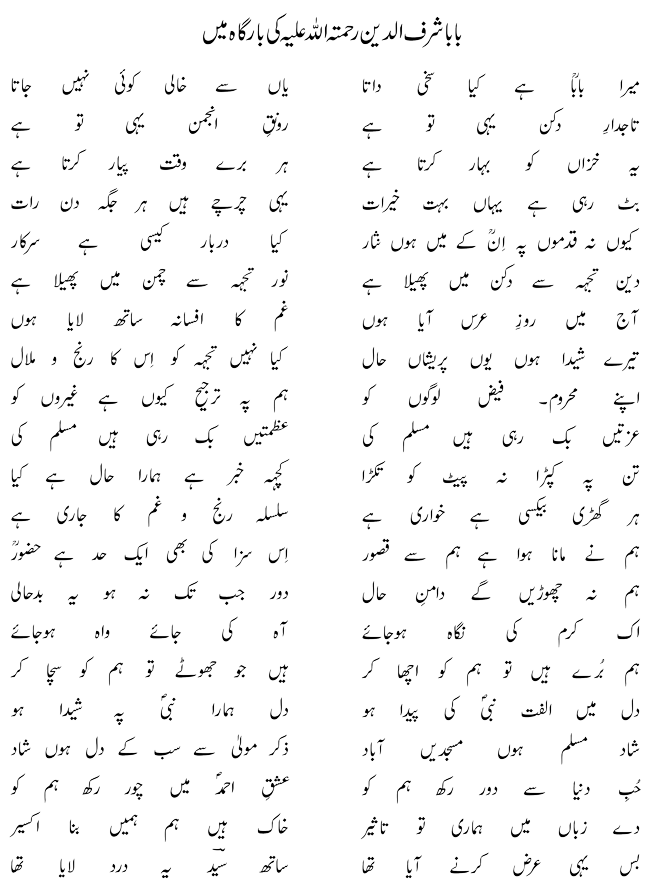 بابا شرف الدین رحمتہ اللہ علیہ کی بارگاہ میں
میرا باباؒ ہے کیا سخی داتا یاں سے خالی کوئی نہیں جاتا
تاجدارِ دکن یہی تو ہے رونقِ انجمن یہی تو ہے
یہ خزاں کو بہار کرتا ہے ہر برے وقت پیار کرتا ہے
بٹ رہی ہے یہاں بہت خیرات یہی چرچے ہیں ہر جگہ دن رات
کیوں نہ قدموں پہ اِنؒ کے میں ہوں نثار کیا دربار کیسی ہے سرکار
دین تجھہ سے دکن میں پھیلا ہے نور تجھہ سے چمن میں پھیلا ہے
آج میں روزِ عرس آیا ہوں غم کا افسانہ ساتھ لایا ہوں
تیرے شیدا ہوں یوں پریشاں حال کیا نہیں تجھہ کو اِس کا رنج و ملال
اپنے محروم۔ فیض لوگوں کو ہم پہ ترجیح کیوں ہے غیروں کو
عزتیں بک رہی ہیں مسلم کی عظمتیں بک رہی ہیں مسلم کی
تن پہ کپڑا نہ پیٹ کو ٹکڑا کچھہ خبر ہے ہمارا حال ہے کیا
ہر گھڑی بیکسی ہے خواری ہے سلسلہ رنج و غم کا جاری ہے
ہم نے مانا ہوا ہے ہم سے قصور اِس سزا کی بھی ایک حد ہے حضورؒ
ہم نہ چھوڑیں گے دامنِ حال دور جب تک نہ ہو یہ بدحالی
اک کرم کی نگاہ ہوجائے آہ کی جائے واہ ہوجائے
ہم بُرے ہیں تو ہم کو اچھا کر ہیں جو جھوٹے تو ہم کو سچا کر
دل میں الفت نبیؐ کی پیدا ہو دل ہمارا نبیؐ پہ شیدا ہو
شاد مسلم ہوں مسجدیں آباد ذکر مولیٰ سے سب کے دل ہوں شاد
حُبِ دنیا سے دور رکھ ہم کو عشقِ احمدؐ میں چور رکھ ہم کو
دے زباں میں ہماری تو تاثیر خاک ہیں ہم ہمیں بنا اکسیر
بس یہی عرض کرنے آیا تھا ساتھ سیّد یہ درد لایا تھا